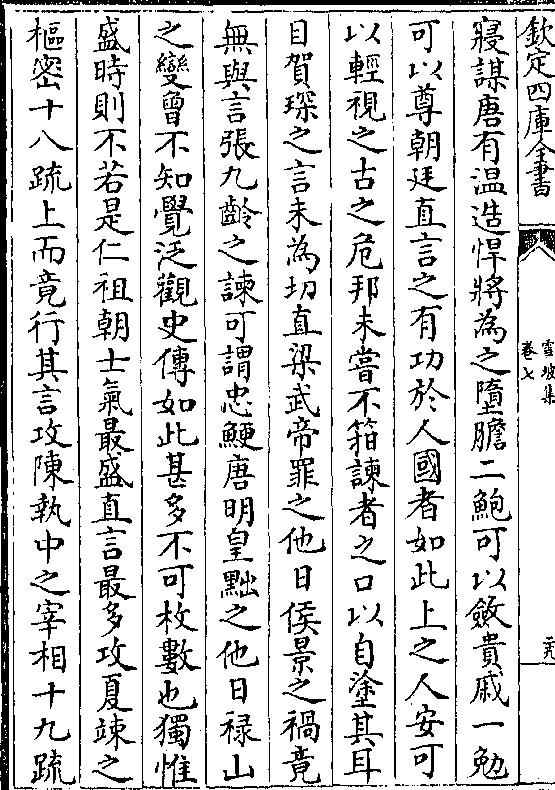 欽定四庫全書
雪坡集
卷七
寢謀唐有温造悍將為之墮膽二鮑可以斂貴戚一勉
可以尊朝廷直言之有功於人國者如此上之人安可
以輕視之古之危邦未嘗不箝諫者之口以自塗其耳
目賀琛之言未為切直梁武帝罪之他日侯景之禍竟
無與言張九齡之諫可謂忠鯁唐明皇黜之他日禄山
之變曾不知覺泛觀史傳如此甚多不可枚數也獨惟
盛時則不若是仁祖朝士氣最盛直言最多攻夏竦之
樞密十八疏上而竟行其言攻陳執中之宰相十九疏